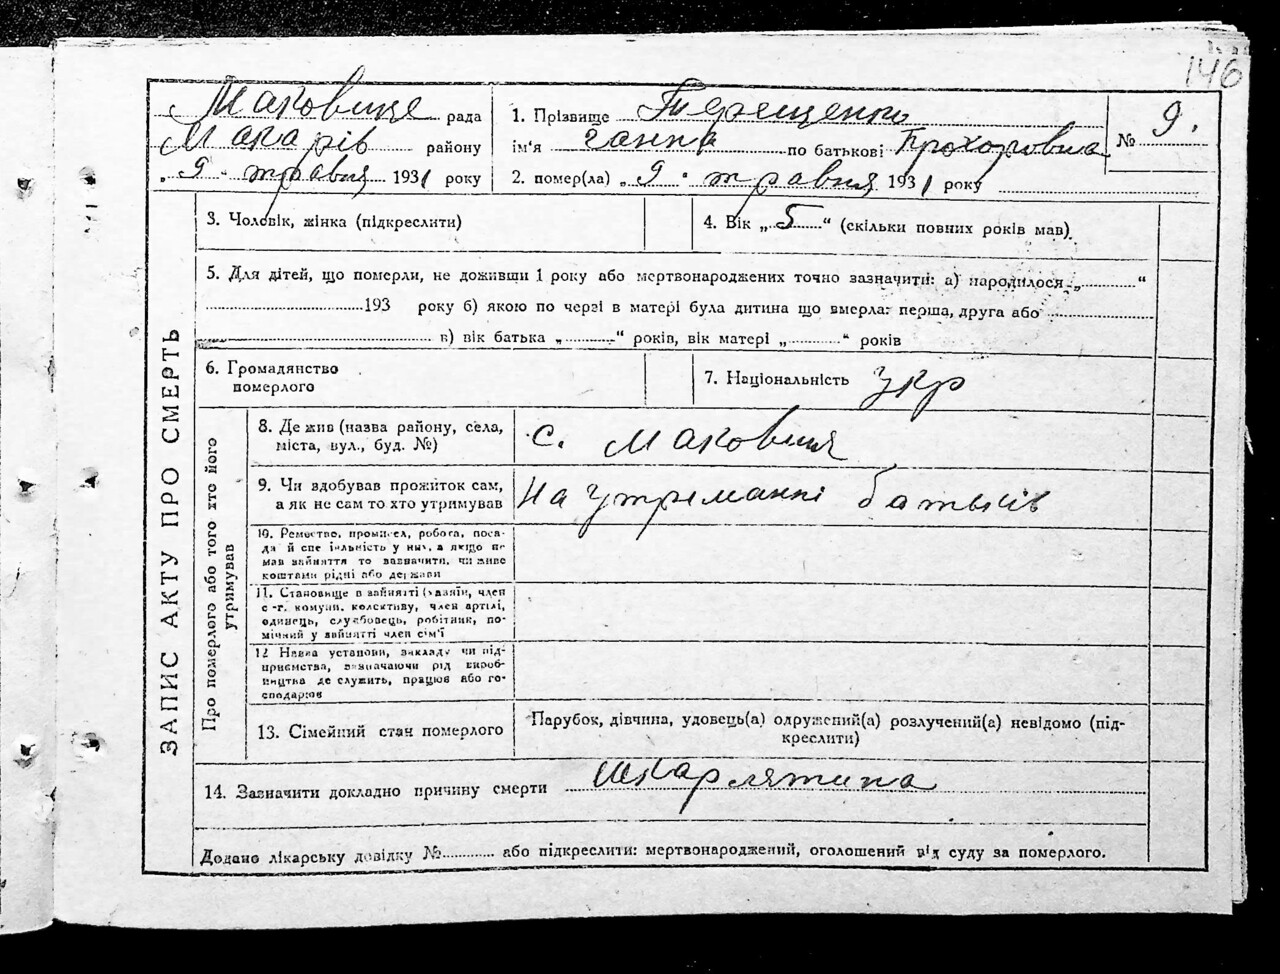 146
Маковище рада
Макарів району
„ 9 · травня 1931 року
1. Прізвище Терещенко
ім'я Ганна по батькові Прохоровна
№ 9.
2. помер(ла) „ 9 · травня 1931 року
3. Чоловік, жінка (підкреслити)
4. Вік „ 5 “ (скільки повних років мав)
5. Для дітей, що померли, не доживши 1 року або мертвонароджених точно зазначити: а) народилося „ “
193 року б) якою по черзі в матері була дитина що вмерла: перша, друга або
в) вік батька „ “ років, вік матері „ “ років
6. Громадянство
померлого
7. Національність укр
ЗАПИС АКТУ ПРО СМЕРТЬ
Про померлого або того хто його
утримував
8. Де жив (назва району, села,
міста, вул., буд. №)
с. Маковищя
9. Чи здобував прожиток сам,
а як не сам то хто утримував
На утриманні батьків
10. Ремество, промисел, робота, поса-
да й спеціяльність у них, а якщо не
мав вайняття то вазначити, чи живе
коштами рідні або держави
11. Становище в вайнятті (хазяїн, член
с.-г. комуни, колективу, член артілі,
одинець, службовець, робітник, по-
мічний у вайнятті член сім'ї
12 Назва установи, закладу чи під-
приємства, вазначаючи рід вироб-
ництва де служить, працює або го-
сподарює
13. Сімейний стан померлого
Парубок, дівчина, удовець(а) одружений(а) розлучений(а) невідомо (під-
креслити)
14. Зазначити докладно причину смерти Шкарлятина
Додано лікарську довідку № або підкреслити: мертвонароджений, оголошений від суду за померлого.